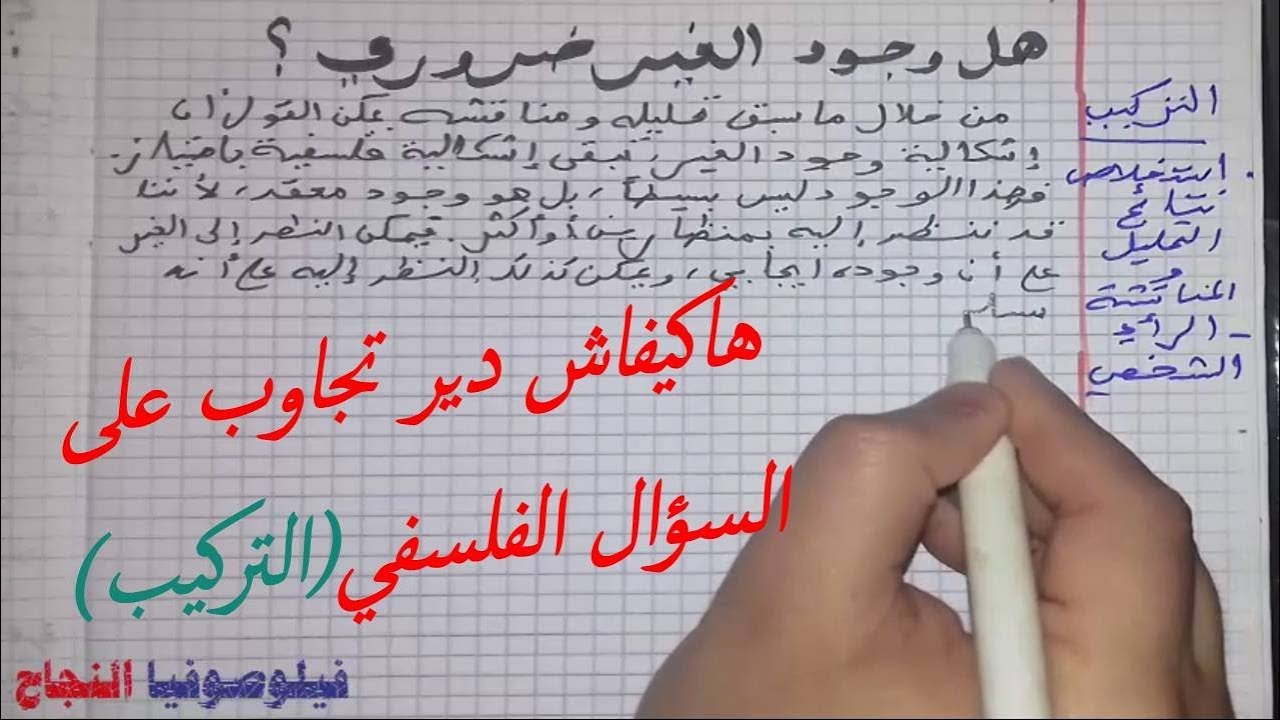 هل وجود الغير ضروري؟
من خلال ما سبق تحليله ومناقشته يمكن القول أن
إشكالية وجود الغير، تبقى إشكالية فلسفية بامتياز.
فهذا الوجود ليس بسيطا، بل هو وجود معقد، لأننا
قد ننظر إليه بمنظارين أو أكثر. فيمكن النظر إلى الغير
على أن وجوده إيجابي، ويمكن كذلك النظر إليه على أنه
التركيب
استخلاص
نتائج
التحليل
و
المناقشة
- الرأي
الشخصي
هاكيفاش دير تجاوب على
السؤال الفلسفي (التركيب)
فيلوصوفيا النجاح